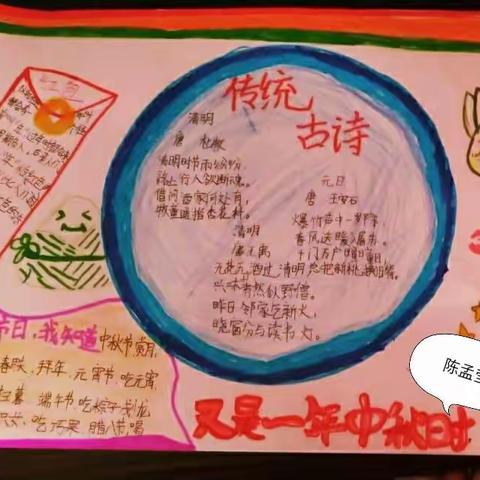 红包
传统
古诗
清明
唐 杜牧
清明时节雨纷纷
路上行人欲断魂。
借问酒家何处有,
牧童遥指杏花村。
元日
唐 王安石
爆竹声中一岁除
春风送暖入屠苏。
千门万户曈曈日
总把新桃换旧符。
清明
唐 王禹
无花无酒过清明
兴味萧然似野僧。
昨日邻家乞新火,
晓窗分与读书灯。
节日,我知道 中秋节赏月,
春联,拜年,元宵节,吃元宵,
扫墓 端午节吃粽子,划龙
吃巧果 腊八节,喝
又是一年中秋时
陈孟